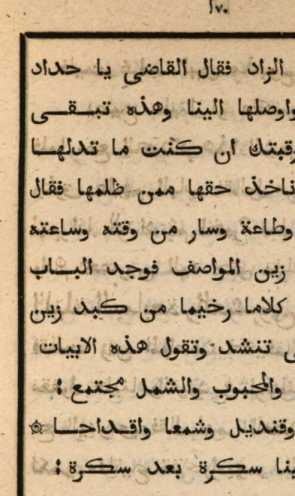 ١٧٠
الزاد فقال القاضى يا حداد
واوصلها الينا وهذه تبقى
رقبتك ان كنت ما تدلها
ناخذ حقها ممن ظلمها فقال
وطاعة وسار من وقته وساعته
زين المواصف فوجد الباب
كلاما رخيما من كبد زين
تنشد وتقول هذه الابيات
والمحبوب والشمل مجتمع :
وقنديل وشمعا واقداحا ☆
سكرة بعد سكرة :